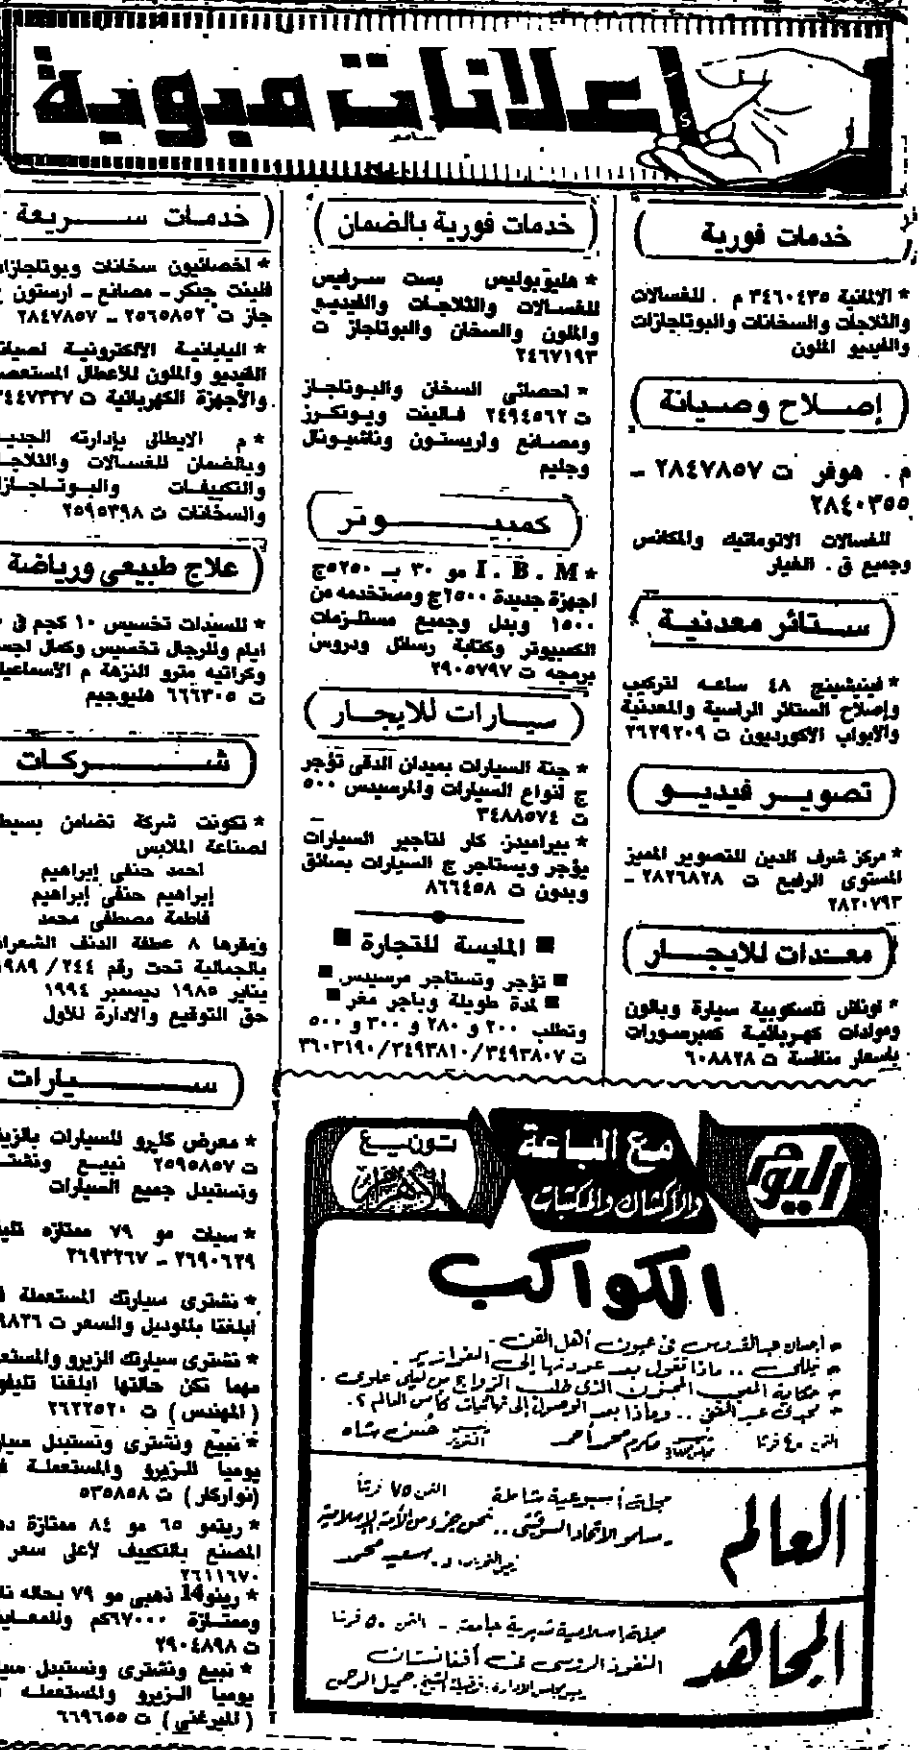 إعلانات مبوبة
سامر
خدمات فورية
* الالمانية ٣٤٦٠٤٣٥ م . للغسالات
والثلاجات والسخانات والبوتاجازات
والفيديو الملون
إصلاح وصيانة
م . هوفر ت ٢٨٤٧٨٥٧ ـ
٢٨٤٠٣٥٥
للغسالات الاتوماتيك والمكانس
وجميع ق . الغيار
ستائر معدنية
* فينيشينج ٤٨ ساعه لتركيب
وإصلاح الستائر الراسية والمعدنية
والابواب الاكورديون ت ٢٦٢٩٢٠٩
تصوير فيديو
* مركز شرف الدين للتصوير المميز
المستوى الرفيع ت ٢٨٢٦٨٢٨ ـ
٢٨٢٠٧٩٣
معدات للايجار
* اوناش تلسكوبية سيارة وبالون
ومولدات كهربائية كمبرسورات
باسعار منافسة ت ٦٠٨٨٢٨
خدمات فورية بالضمان
* هليوبوليس بست سرفيس
للغسالات والثلاجات والفيديو
والملون والسخان والبوتاجاز ت
٢٤٦٧١٩٣
* احصائى السخان والبوتاجاز
ت ٢٤٩٤٥٦٢ فالينت ويونكرز
ومصانع واريستون وناشيونال
وجليم
كمبيوتر
* I . B . M مو ٣٠ بـ ٥٢٥٠ج
اجهزة جديدة ٢٥٠٠ج ومستخدمه من
١٥٠٠ وبدل وجميع مستلزمات
الكمبيوتر وكتابة رسائل ودروس
برمجه ت ٢٩٠٥٧٩٧
سيارات للايجار
* جنة السيارات بميدان الدقى تؤجر
ج انواع السيارات والمرسيدس ٥٠٠
ت ٣٤٨٨٥٧٤
* بيراميدز كار لتاجير السيارات
يؤجر ويستاجر ج السيارات بسائق
وبدون ت ٨٦٦٤٥٨
■ الماسة للتجارة ■
■ تؤجر وتستأجر مرسيدس ■
■ لمدة طويلة وباجر مغر ■
وتطلب ٢٠٠ و ٢٨٠ و ٣٠٠ و ٥٠٠
ت ٣٤٩٣٨٠٧/٣٤٩٣٨١٠/٣٦٠٣١٩٠
خدمات سريعة
* اخصائيون سخانات وبوتاجازات
فلينت جنكر ـ مصانع ـ ارستون
جاز ت ٢٥٦٥٨٥٢ ـ ٢٨٤٧٨٥٧
* اليابانية الالكترونية لصيانة
الفيديو والملون للأعطال المستعصية
والأجهزة الكهربائية ت ٣٤٤٧٣٣٧
* م الايطالى بإدارته الجديدة
وبالضمان للغسالات والثلاجات
والتكييفات والبوتاجازات
والسخانات ت ٢٥٩٥٣٩٨
علاج طبيعى ورياضة
* للسيدات تخسيس ١٠ كجم فى
ايام وللرجال تخسيس وكمال اجسام
وكراتيه مترو النزهة م الأسماعيلية
ت ٦٦٦٣٠٥ هليوجيم
شركات
* تكونت شركة تضامن بسيطة
لصناعة الملابس
احمد حنفى إبراهيم
إبراهيم حنفى إبراهيم
فاطمة مصطفى محمد
ومقرها ٨ عطفة الدنف الشعرانى
بالجمالية تحت رقم ٢٤٤ / ١٩٨٩
يناير ١٩٨٥ ديسمبر ١٩٩٤
حق التوقيع والادارة للأول
سيارات
* معرض كليرو للسيارات بالزيتون
ت ٢٥٩٥٨٥٧ نبيع ونشترى
ونستبدل جميع السيارات
* سيات مو ٧٩ ممتازه تليفون
٢٦٩٠٦٢٩ ـ ٢٦٩٣٢٦٧
* نشترى سيارتك المستعملة
أبلغنا بالموديل والسعر ت
* نشترى سيارتك الزيرو والمستعملة
مهما تكن حالتها ابلغنا تليفون
( المهندس ) ت ٢٦٢٢٥٢٠
* نبيع ونشترى ونستبدل سيارات
يوميا الزيرو والمستعملة
( نواركار ) ت ٥٣٥٨٥٨
* ريتمو ٦٥ مو ٨٤ ممتازة
المصنع بالتكييف لأعلى سعر
٢٦١١٦٧٠
* رينو14 ذهبى مو ٧٩ بحاله
وممتازة ٦٧٠٠٠كم وللمعاينة
ت ٢٩٠٤٨٩٨
* نبيع ونشترى ونستبدل سيارات
يوميا الزيرو والمستعمله
( الميرغنى ) ت ٦٦٩٦٥٥
اليوم
مع الباعة
والأكشاك والمكتبات
توزيع
الأهرام
الكواكب
* احسان عبد القدوس فى عيون أهل الفن
* نيللى .. ماذا تقول بعد عودتها إلى الفوازير .
* حكاية المعجب المجنون الذى طلب الزواج من ليلى علوى .
* مجدى عبد الغنى .. وماذا بعد الوصول إلى نهائيات كأس العالم ؟ .
الثمن ٤٠ قرشا
رئيس مجلس الإدارة مكرم محمد أحمد
رئيس التحرير حُسن شاه
العالم
مجلة أسبوعية شاملة الثمن ٧٥ قرشاً
مسلمو الاتحاد السوفيتى .. نحن جزء من الأمة الإسلامية
رئيس التحرير . د . سعيد محمد
المجاهد
مجلة إسلامية شهرية جامعة . ـ الثمن ٥٠ قرشا
النفوذ الروسى فى أفغانستان
رئيس مجلس الإدارة : فضيلة الشيخ . جميل الرحمن